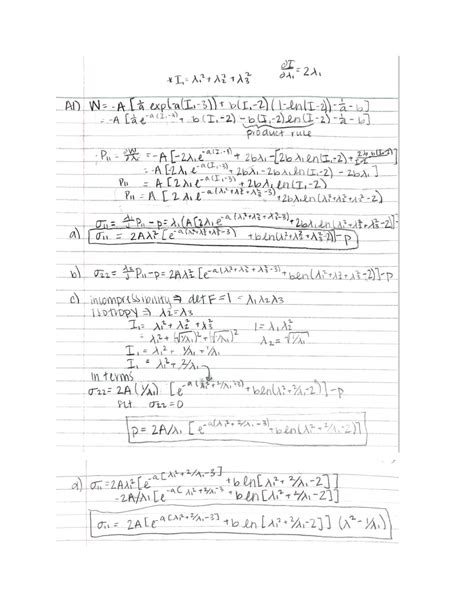 *I₁ = λ₁² + λ₂² + λ₃²   ∂I/∂λ₁ = 2λ₁
A1) W = -A [1/a exp(-a(I₁-3)) + b(I₁-2)(1-ln(I₁-2)) - 1/a - b]
= -A [1/a e^-a(I₁-3) + b(I₁-2) - b(I₁-2)ln(I₁-2) - 1/a - b]
product rule
P₁₁ = ∂W/∂λ₁ = -A [-2λ₁e^-a(I₁-3) + 2bλ₁ - [2bλ₁ln(I₁-2) +
= -A [-2λ₁e^-a(I₁-3) + 2bλ₁ - 2bλ₁ln(I₁-2) - 2bλ₁]
P₁₁ = A [2λ₁e^-a(I₁-3) + 2bλ₁ln(I₁-2)]
P₁₁ = A [2λ₁e^-a(λ₁²+λ₂²+λ₃²-3) + 2bλ₁ln(λ₁²+λ₂²+λ₃²-2)
σ₁₁ = P₁₁ - p = λ₁(A[2λ₁e^-a(λ₁²+λ₂²+λ₃²-3) + 2bλ₁ln(λ₁²+λ₂²+λ₃²-2)]-
a) σ₁₁ = 2Aλ₁² [e^-a(λ₁²+λ₂²+λ₃²-3) + bln(λ₁²+λ₂²+λ₃²-2)] - p
b) σ₂₂ = P₁₁ - p = 2Aλ₂² [e^-a(λ₁²+λ₂²+λ₃²-3) + bln(λ₁²+λ₂²+λ₃²-2)] - p
c) incompressibility ⇒ det F = 1 = λ₁λ₂λ₃
isotropy ⇒ λ₂ = λ₃
I₁ = λ₁² + λ₂² + λ₃²   1 = λ₁λ₂²
= λ₁² + (√1/λ₁)² + (√1/λ₁)²   λ₂ = √1/λ₁
I₁ = λ₁² + 1/λ₁ + 1/λ₁
I₁ = λ₁² + 2/λ₁
in terms
σ₂₂ = 2A(1/λ₁) [e^-a(λ₁²+2/λ₁-3) + bln(λ₁²+2/λ₁-2)] - p
put σ₂₂ = 0
p = 2A/λ₁ [e^-a(λ₁²+2/λ₁-3) + bln(λ₁²+2/λ₁-2)]
d) σ₁₁ = 2Aλ₁² [e^-a[λ₁²+2/λ₁-3] + bln[λ₁²+2/λ₁-2]]
-2A/λ₁ [e^-a[λ₁²+2/λ₁-3] + bln[λ₁²+2/λ₁-2]]
σ₁₁ = 2A[e^-a[λ₁²+2/λ₁-3] + bln[λ₁²+2/λ₁-2]] (λ² - 1/λ₁)